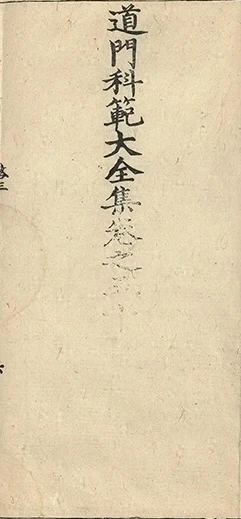 道門科範大全集卷之